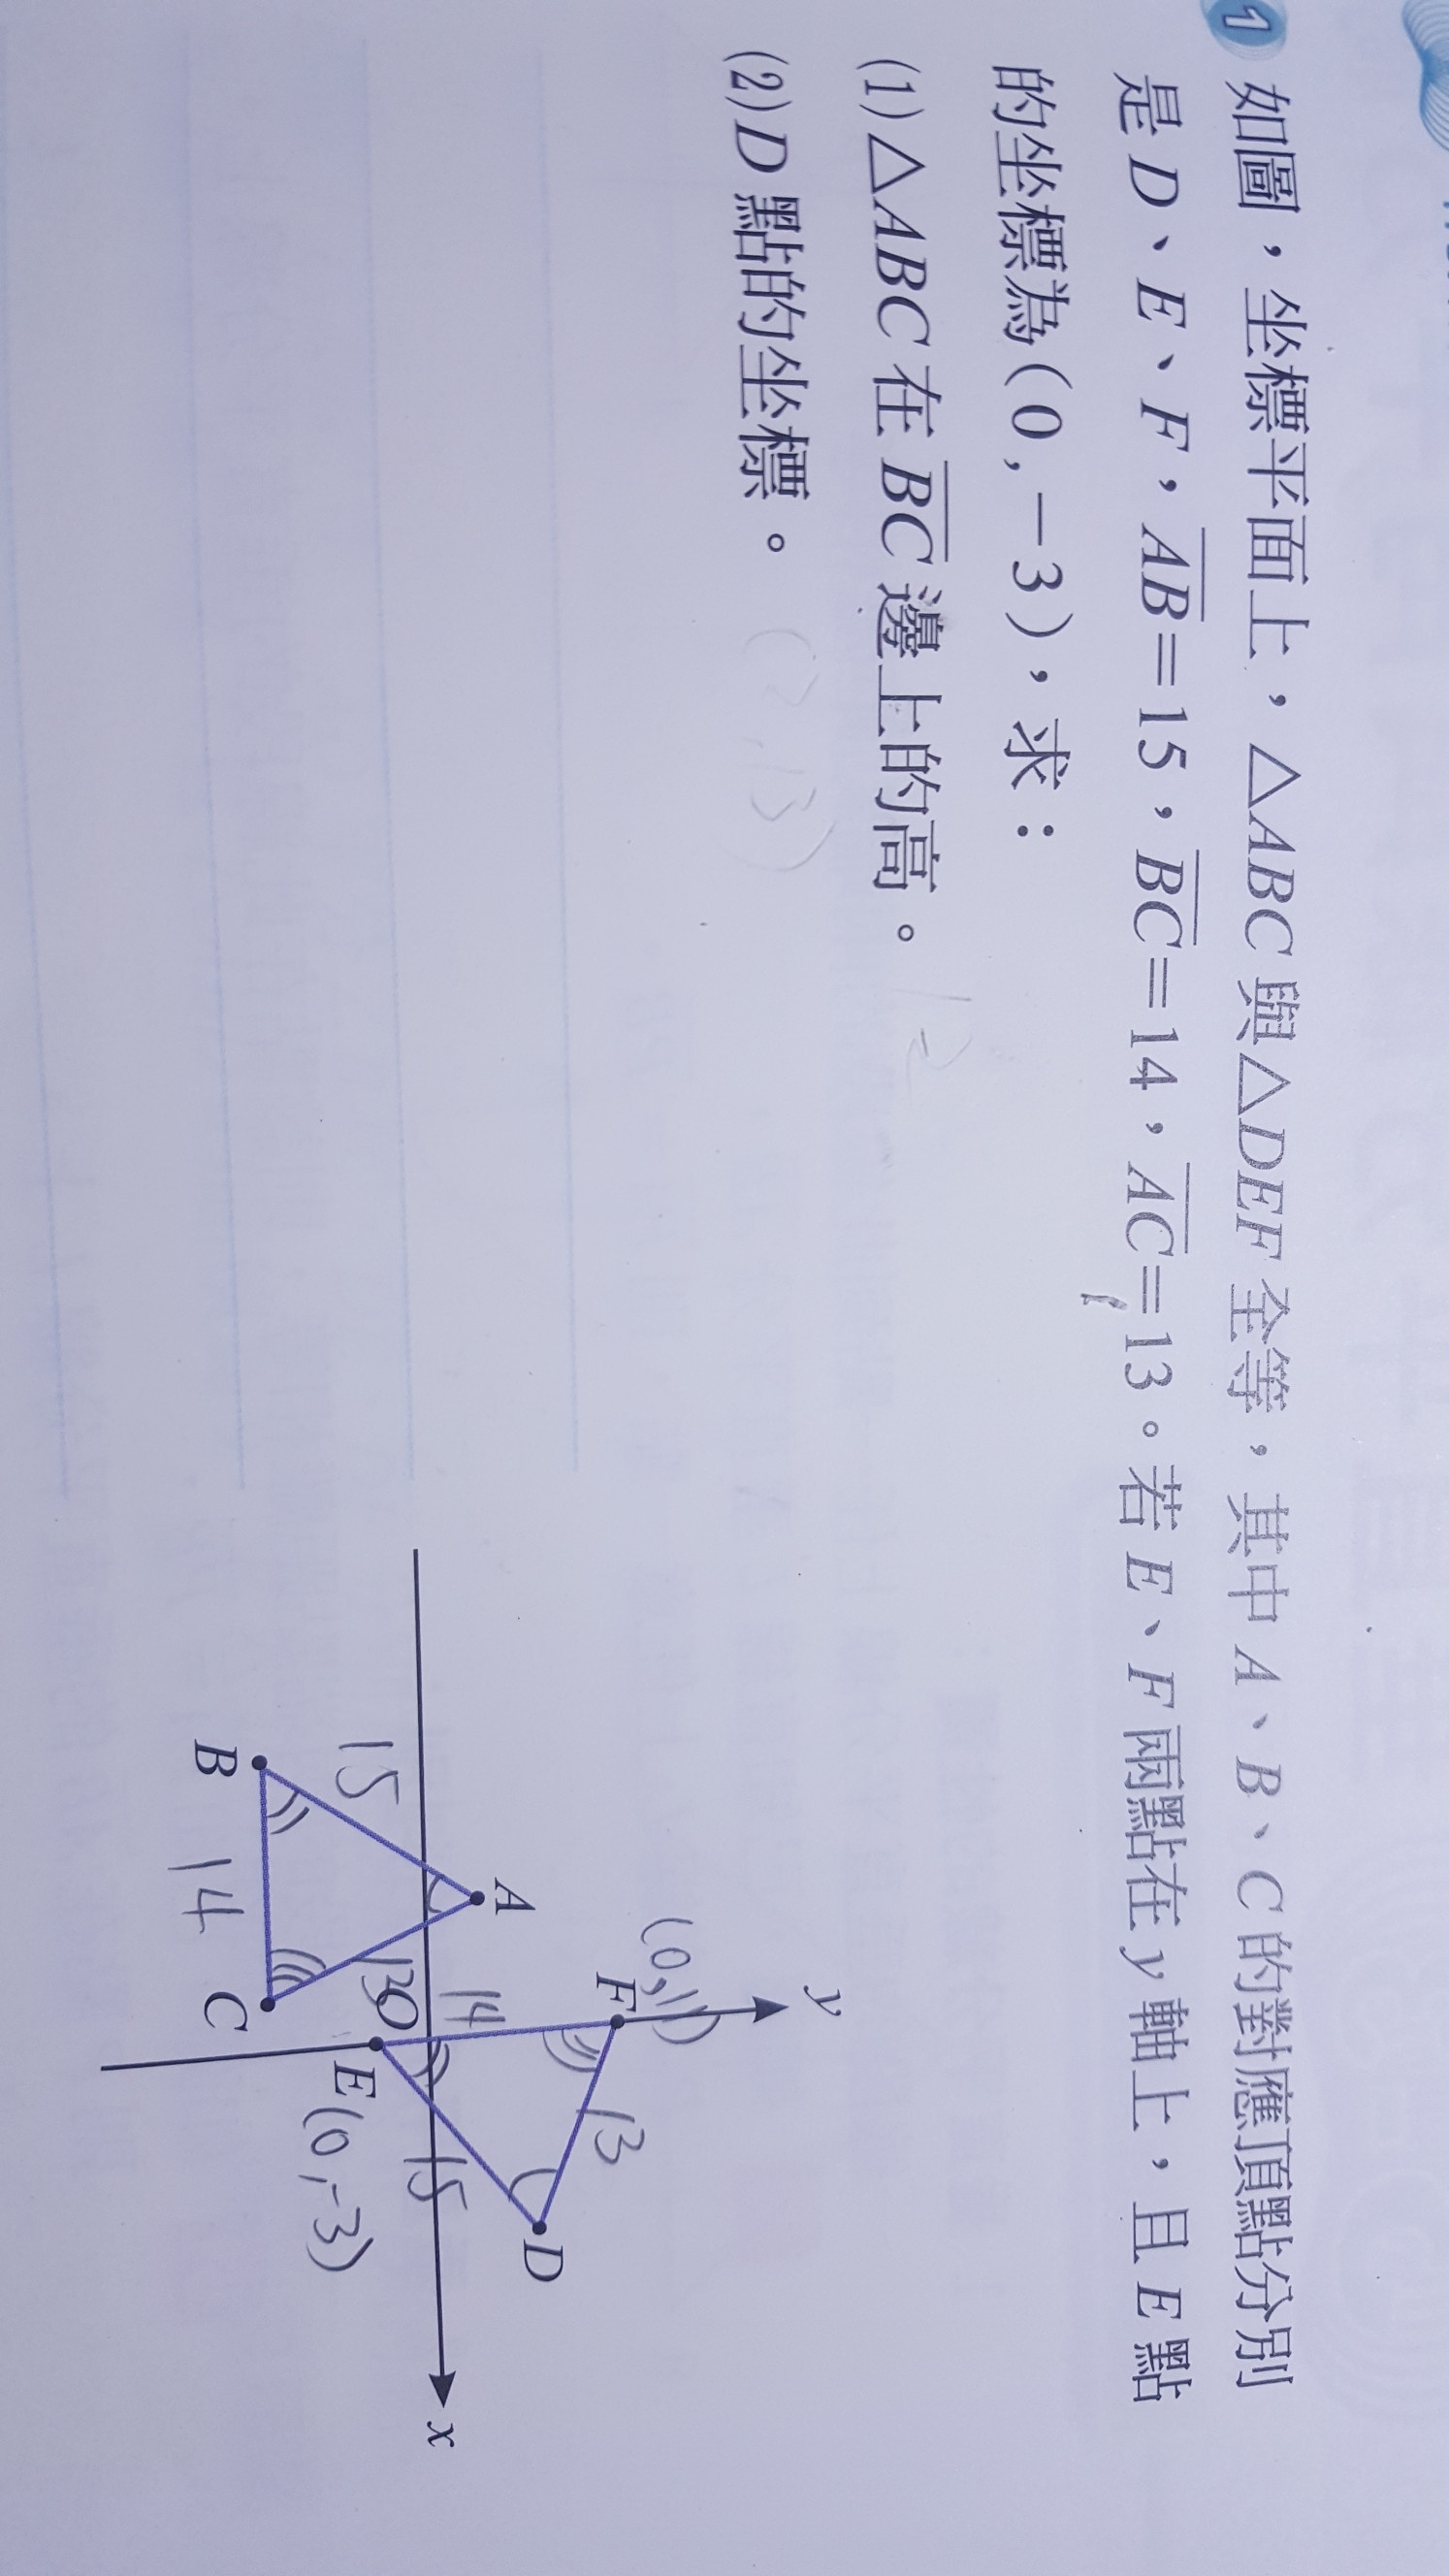 1 如圖，坐標平面上，△ABC與△DEF全等，其中A、B、C的對應頂點分別
是D、E、F，AB=15，BC=14，AC=13。若E、F兩點在y軸上，且E點
的坐標為(0,-3)，求：
(1)△ABC在BC邊上的高。 12
(2)D點的坐標。
y
(0,11)
F
A
D
14
13
15
15
13
O
x
E(0,-3)
B
C
14